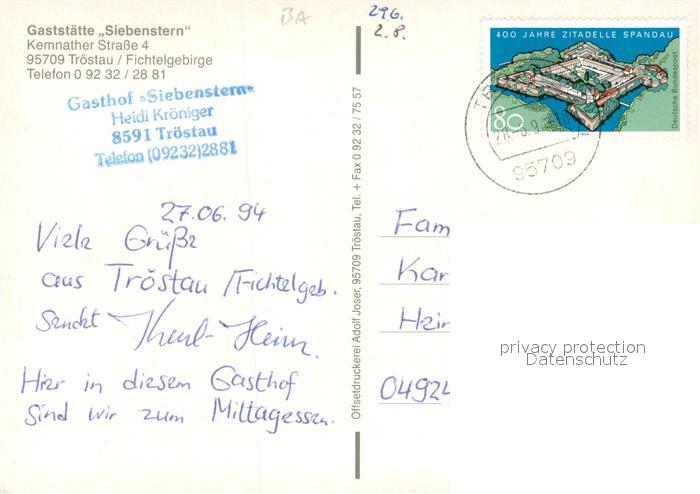 BA
296.
2.8.
Gaststätte „Siebenstern“
Kemnather Straße 4
95709 Tröstau / Fichtelgebirge
Telefon 0 92 32 / 28 81
Gasthof »Siebenstern«
Heidi Kröniger
8591 Tröstau
Telefon (09232)2881
400 JAHRE ZITADELLE SPANDAU
80
Deutsche Bundespost
95709
27.06.94
Viele Grüße
aus Tröstau/Fichtelgeb.
Sendet Karl-Heinz.
Hier in diesem Gasthof
sind wir zum Mittagessen.
Offsetdruckerei Adolf Joser, 95709 Tröstau, Tel. + Fax 0 92 32 / 75 57
Fam
Kar
Hein
04924
privacy protection
Datenschutz